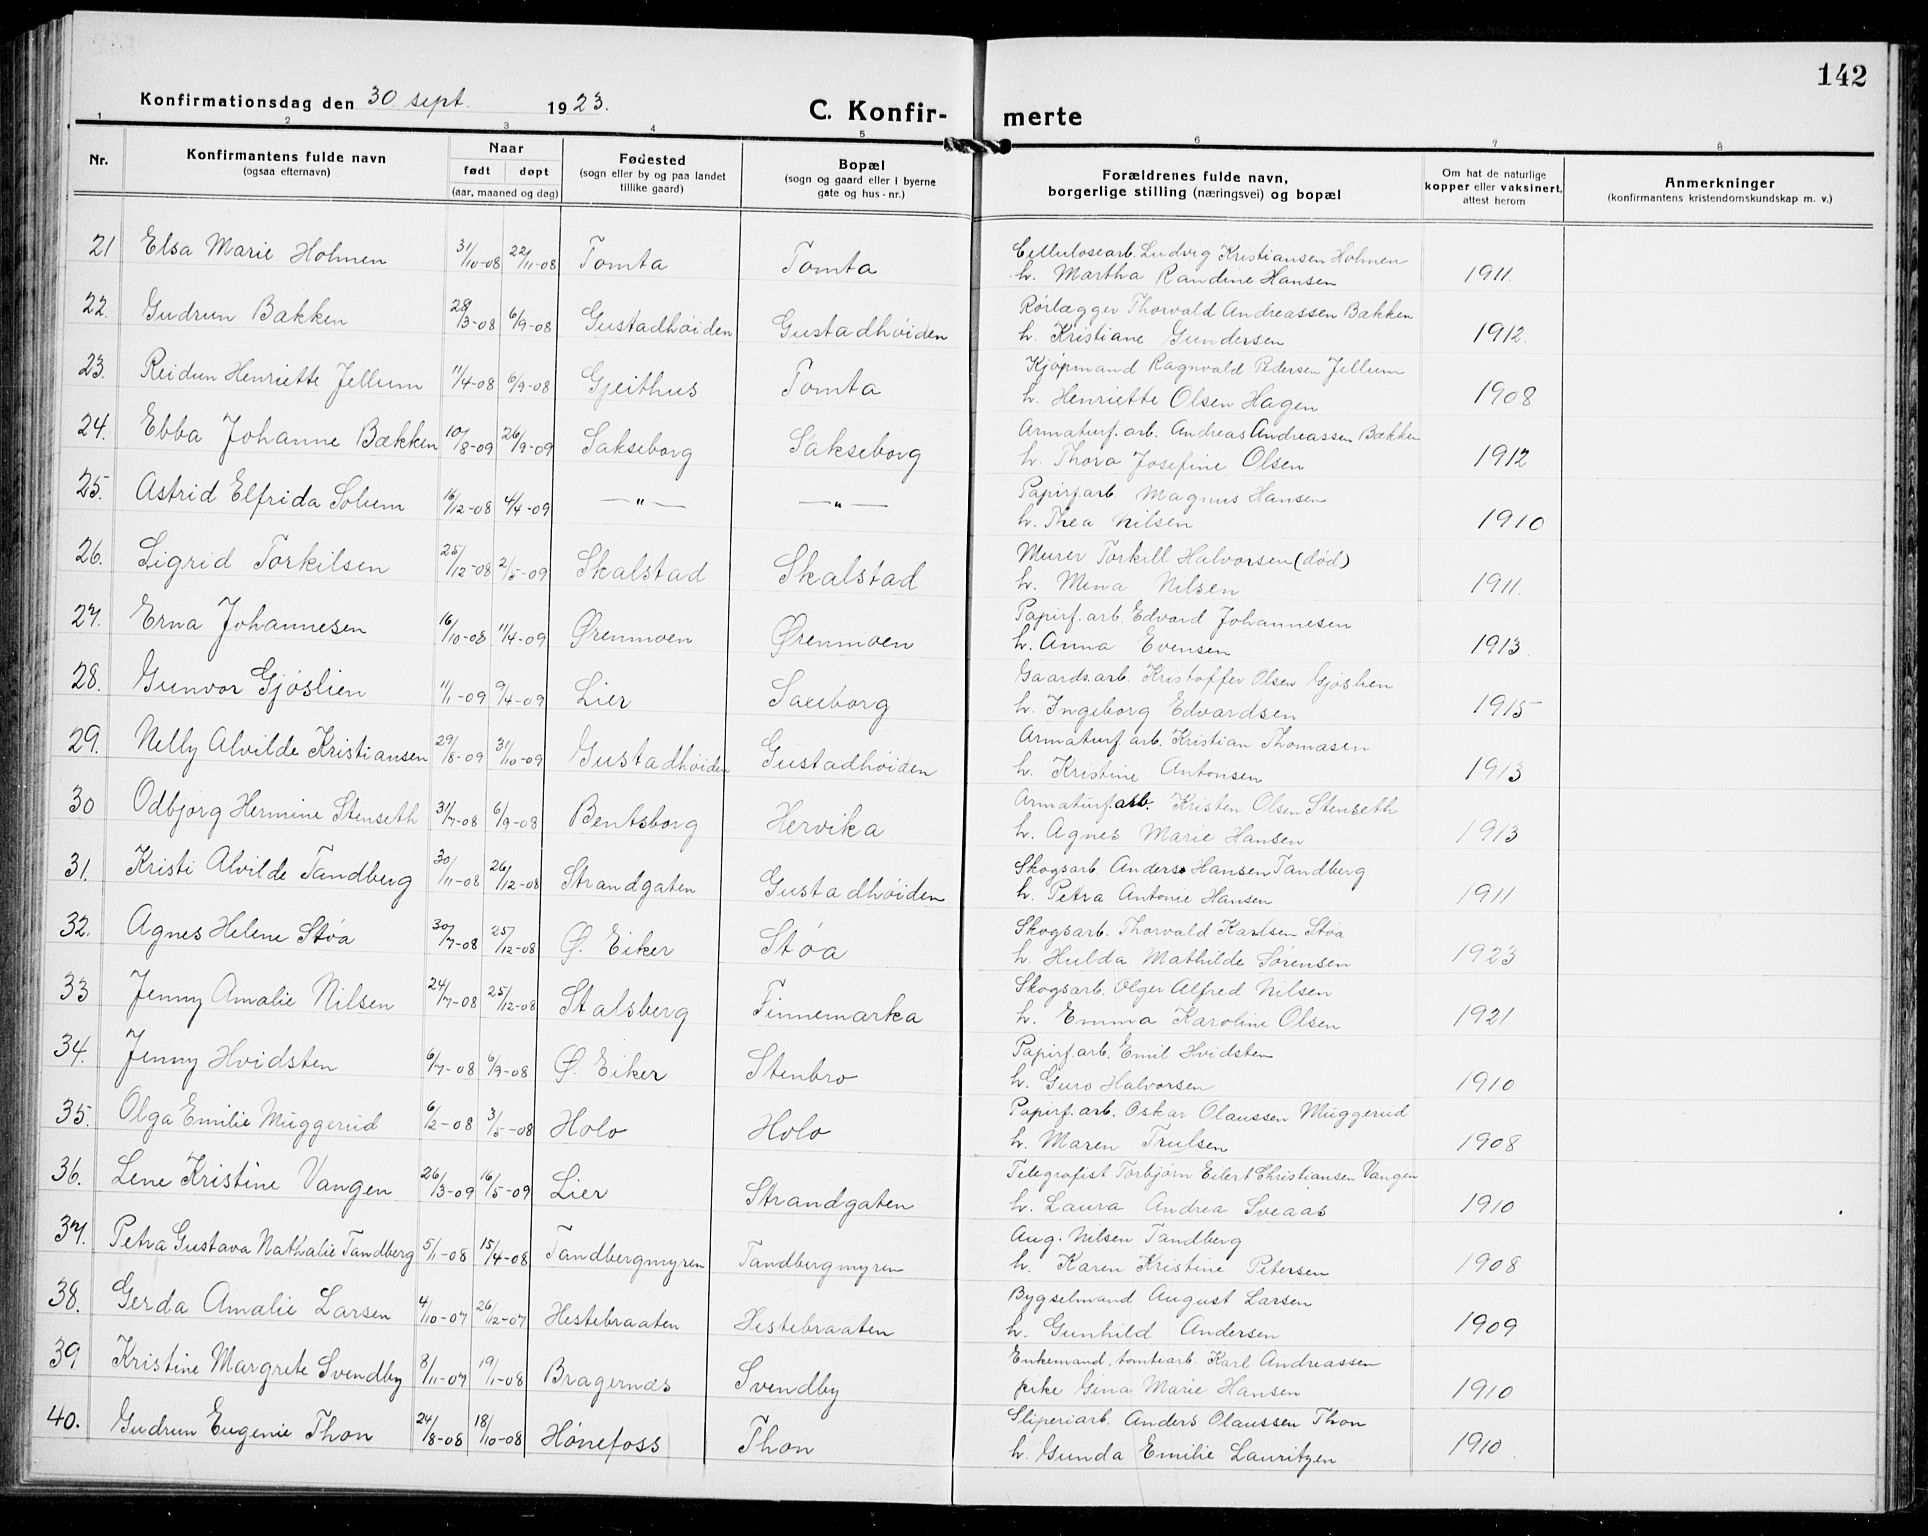 142
Konfirmationsdag den 30. sept. 1923.
C. Konfir- merte
1 2 3 4 5 6 7 8
Nr.
Konfirmantens fulde navn
(ogsaa efternavn)
Naar
født døpt
(aar, maaned og dag)
Fødested
(sogn eller by og paa landet
tillike gaard)
Bopæl
(sogn og gaard eller i byerne
gate og hus-nr.)
Forældrenes fulde navn,
borgerlige stilling (næringsvei) og bopæl
Om hat de naturlige
kopper eller vaksinert,
attest herom
Anmerkninger
(konfirmantens kristendomskundskap m. v.)
21 Elsa Marie Holmen 31/10-08 22/11-08 Tomta Tomta Cellulosearb. Ludvig Kristiansen Holmen
h. Martha Randine Hansen 1911.
22. Gudrun Bakken 28/3-08 6/9-08 Gustadhöiden Gustadhöiden Rörlægger Thorvald Andreassen Bakken
h. Kristiane Gundersen 1912.
23. Reidun Henriette Jellum 11/4-08 6/9-08 Gjeithus Tomta Kjøpmand Ragnvald Pedersen Jellum
h. Henriette Olsen Hagen 1908
24. Ebba Johanne Bækken 10/8-09 26/9-09 Sakseborg Sakseborg Armaturf. arb. Andreas Andreassen Bækken
h. Thora Josefine Olsen 1912
25. Astrid Elfrida Solum 16/12-08 4/4-09 —"— —"— Papirf.arb. Magnus Hansen
h. Thea Nilsen 1910
26. Sigrid Torkilsen 25/12-08 2/5-09 Skalstad Skalstad Murer Torkill Halvorsen (död)
h. Mina Nilsen 1911.
27. Erna Johannesen 16/10-08 11/4-09 Ørenmoen Ørenmoen Papirf. arb. Edvard Johannesen
h. Anna Evensen 1913.
28. Gunvor Gjöslien 11/1-09 9/4-09 Lier Saxeborg Gaardsarb. Kristoffer Olsen Gjöslien
h. Ingeborg Edvardsen 1915
29. Nelly Alvilde Kristiansen 29/8-09 31/10-09 Gustadhöiden Gustadhöiden Armaturf. arb. Kristian Thomasen
h. Kristine Antonsen 1913
30 Odbjörg Hermine Stenseth 31/7-08 6/9-08 Bentsborg Hervika Armaturf.arb. Kristen Olsen Stenseth
h. Agnes Marie Hansen 1913
31. Kristi Alvilde Tandberg 30/11-08 26/12-08 Strandgaten Gustadhöiden Skogsarb. Anders Hansen Tandberg
h. Petra Antonie Hansen 1911
32. Agnes Helene Støa 30/7-08 25/12-08 Ø. Eiker Støa Skogsarb. Thorvald Karlsen Støa
h. Hulda Mathilde Sørensen 1923
33 Jenny Amalie Nilsen 24/7-08 25/12-08 Stalsberg Finnemarka Skogsarb. Olger Alfred Nilsen
h. Emma Karoline Olsen 1921.
34. Jenny Hvidsten 6/7-08 6/9-08 Ø. Eiker Stenbro Papirf.arb. Emil Hvidsten
h. Guro Halvorsen 1910
35. Olga Emilie Muggerud 6/2-08 3/5-08 Holo Holo Papirf. arb. Oskar Olaussen Muggerud
h. Maren Trulsen 1908
36. Lene Kristine Vangen 26/3-09 16/5-09 Lier Strandgaten Telegrafist Torbjørn Eilert Christiansen Vangen
h. Laura Andrea Sveaas 1910
37. Petra Gustava Nathalie Tandberg 5/1-08 15/4-08 Tandbergmyren Tandbergmyren Aug. Nilsen Tandberg
h. Karen Kristine Petersen 1908
38. Gerda Amalie Larsen 4/10-07 26/12-07 Hestebraaten Hestebraaten Bygselmand August Larsen
h. Gunhild Andersen 1909
39 Kristine Margrete Svendby 8/11-07 19/1-08 Bragernæs Svendby Enkemand, tomtearb. Karl Andreassen
pike Gina Marie Hansen 1910
40. Gudrun Eugenie Thon 24/8-08 18/10-08 Hønefoss Thon Sliperiarb. Anders Olaussen Thon
h. Gunda Emilie Lauritzen 1910.